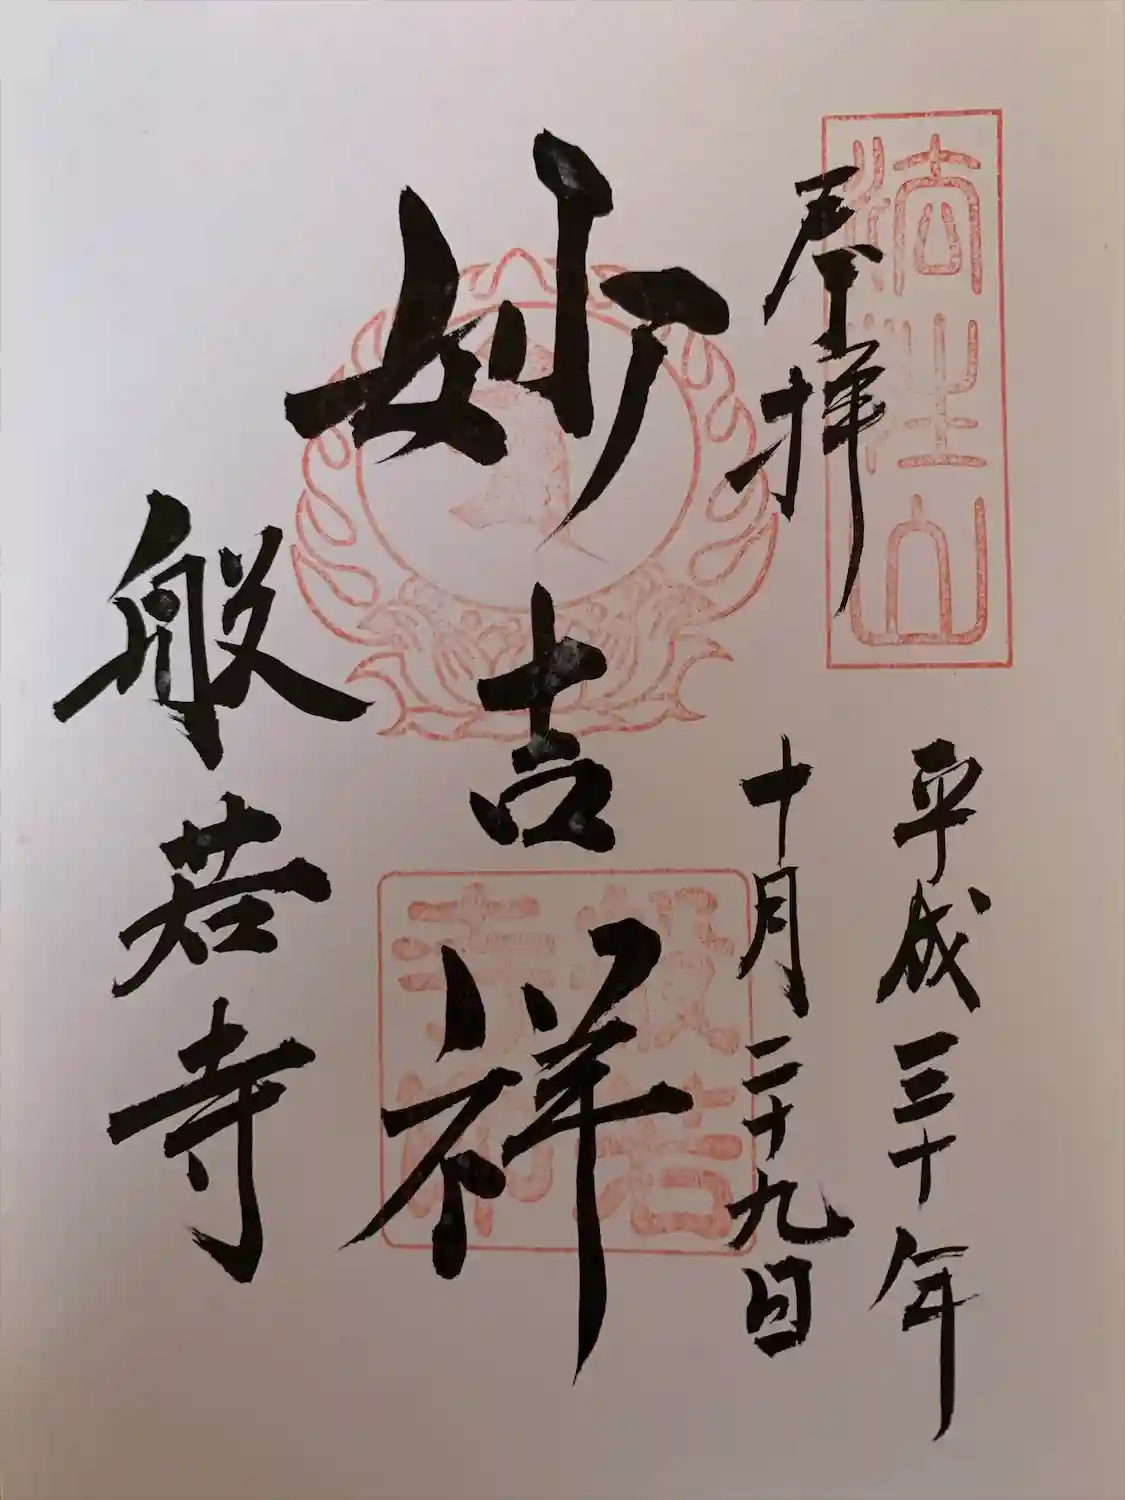 法性山
奉拝
平成三十年
十月二十九日
妙吉祥
般若寺
般若
寺印